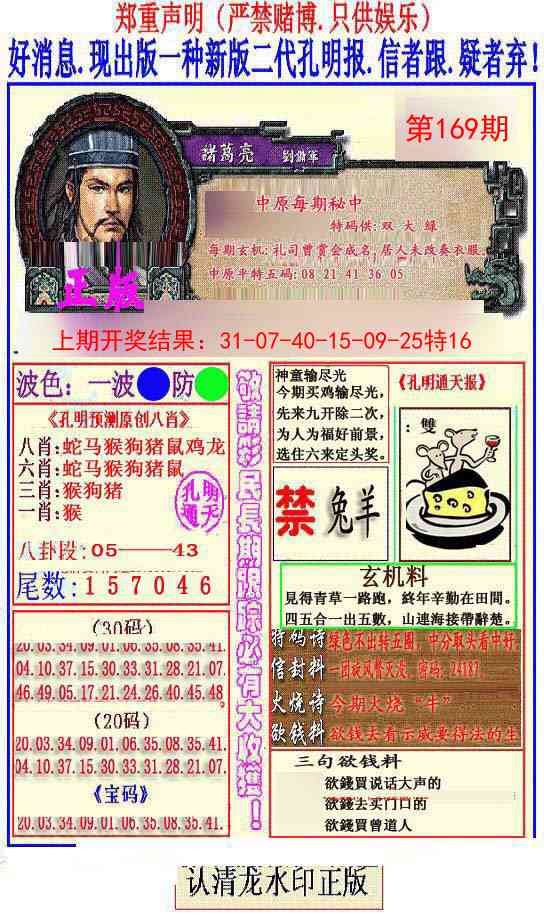 郑重声明（严禁赌博.只供娱乐）
好消息.现出版一种新版二代孔明报.信者跟.疑者弃!
第169期
諸葛亮 劉備軍
中原每期秘中
特码供:双 大 綠
每期玄机:礼司曾賞会成名,居人未改奏衣服.
中原平特五码:08 21 41 36 05
正版
上期开奖结果：31-07-40-15-09-25特16
波色：一波 防
《孔明预测原创八肖》
八肖:蛇马猴狗猪鼠鸡龙
六肖:蛇马猴狗猪鼠
三肖:猴狗猪
一肖:猴
孔明
通天
八卦段:05———43
尾数:157046
(30码)
20.03.34.09.01.06.35.08.35.41.
04.10.37.15.30.33.31.28.21.07.
46.49.05.17.21.24.26.40.45.48,
(20码)
20.03.34.09.01.06.35.08.35.41.
04.10.37.15.30.33.31.28.21.07.
《宝码》
20.03.34.09.01.06.35.08.35.41.
敬請彩民長期跟踪必有大收獲！
神童输尽光
今期买鸡输尽光,
先来九开除二次,
为人为福好前景,
选住六来定头奖。
禁 兔羊
《孔明通天报》
：雙
玄机料
見得青草一路跑，終年辛勤在田間。
四五合一出五數，山連海接帶辭楚。
特码诗 绿色不出转五圈，中分取头看中好
信封料 密码:24187
火烧诗 今期火烧“牛”
欲钱料 欲钱去看示威要得法的生
三句欲钱料
欲錢買说话大声的
欲錢去买门口的
欲錢買曾道人
认清龙水印正版